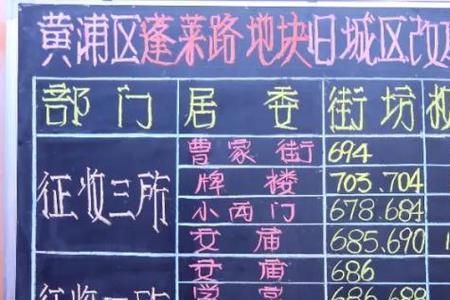 黄浦区蓬莱路地块旧城区改
部门 居委 街坊
征收三所 曹家街 694
牌楼 703.704
小西门 678.684
文庙 685.690
文庙 686
学宫 686.688